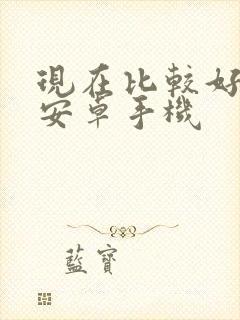 現在比較好
安卓手機
藍寶